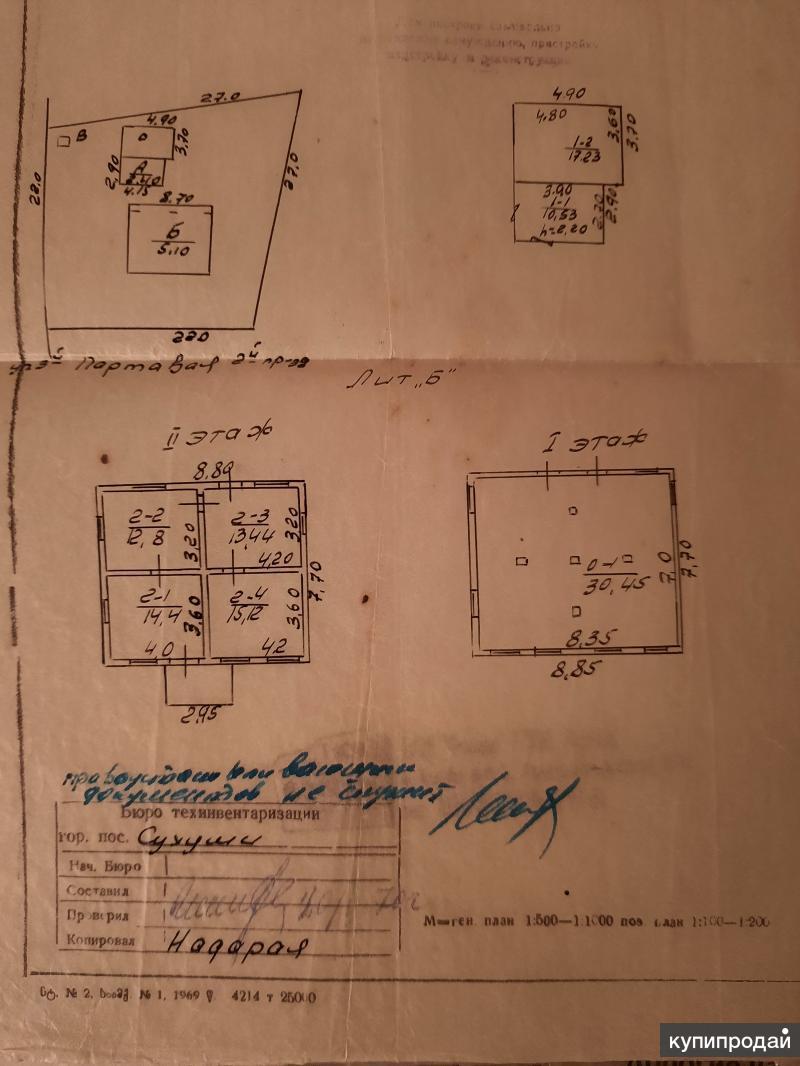 27.0
4.90
В
3,70
А
2,90
22.0
27,0
4.15
8.70
Б
5,10
22.0
4.90
4,80
3,60
3.70
1-2
17.23
3.90
1-1
10,53
2.90
h=2,20
Лит „Б"
II этаж
8,80
2-2
12,8
3,20
2-3
13.44
3,20
4,20
7,70
2-1
14,4
3,60
4,0
2-4
15,12
3,60
4.2
2,95
I этаж
0-1
30,45
7,0
7,70
8,35
8,85
документов не служит
Бюро техинвентаризации
гор. пос. Сухуми
Нач. Бюро
Составил
Проверил
Копировал Надарая
план 1:500—1:1000 поз. план 1:100—1:200
№ 2, № 1, 1969 4214 т 25000
купипродай